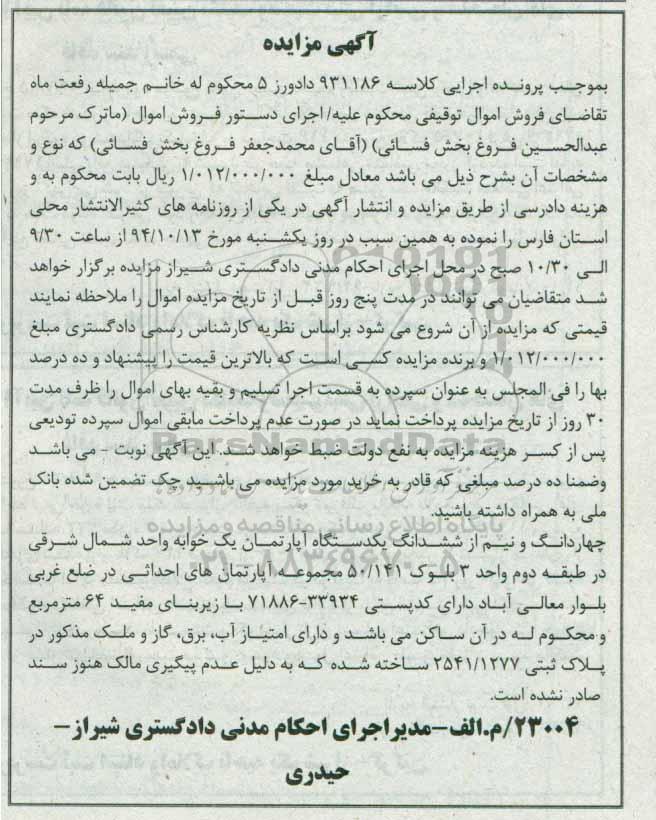 آگهی مزایده
بموجب پرونده اجرایی کلاسه ۹۳۱۱۸۶ دادورز ۵ محکوم له خانم جمیله رفعت ماه
تقاضای فروش اموال توقیفی محکوم علیه/ اجرای دستور فروش اموال (ماترک مرحوم
عبدالحسین فروغ بخش فسائی) (آقای محمدجعفر فروغ بخش فسائی) که نوع و
مشخصات آن بشرح ذیل می باشد معادل مبلغ ۱/۰۱۲/۰۰۰/۰۰۰ ریال بابت محکوم به و
هزینه دادرسی از طریق مزایده و انتشار آگهی در یکی از روزنامه های کثیرالانتشار محلی
استان فارس را نموده به همین سبب در روز یکشنبه مورخ ۹۴/۱۰/۱۳ از ساعت ۹/۳۰
الی ۱۰/۳۰ صبح در محل اجرای احکام مدنی دادگستری شیراز مزایده برگزار خواهد
شد متقاضیان می توانند در مدت پنج روز قبل از تاریخ مزایده اموال را ملاحظه نمایند
قیمتی که مزایده از آن شروع می شود براساس نظریه کارشناس رسمی دادگستری مبلغ
۱/۰۱۲/۰۰۰/۰۰۰ و برنده مزایده کسی است که بالاترین قیمت را پیشنهاد و ده درصد
بها را فی المجلس به عنوان سپرده به قسمت اجرا تسلیم و بقیه بهای اموال را ظرف مدت
۳۰ روز از تاریخ مزایده پرداخت نماید در صورت عدم پرداخت مابقی اموال سپرده تودیعی
پس از کسر هزینه مزایده به نفع دولت ضبط خواهد شد. این آگهی نوبت - می باشد
وضمنا ده درصد مبلغی که قادر به خرید مورد مزایده می باشید چک تضمین شده بانک
ملی به همراه داشته باشید.
چهاردانگ و نیم از ششدانگ یکدستگاه آپارتمان یک خوابه واحد شمال شرقی
در طبقه دوم واحد ۳ بلوک ۵۰/۱۴۱ مجموعه آپارتمان های احداثی در ضلع غربی
بلوار معالی آباد دارای کدپستی ۳۳۹۳۴-۷۱۸۸۶ با زیربنای مفید ۶۴ مترمربع
و محکوم له در آن ساکن می باشد و دارای امتیاز آب، برق، گاز و ملک مذکور در
پلاک ثبتی ۲۵۴۱/۱۲۷۷ ساخته شده که به دلیل عدم پیگیری مالک هنوز سند
صادر نشده است.
۲۳۰۰۴/م.الف-مدیراجرای احکام مدنی دادگستری شیراز-
حیدری
ParsNamadData
پایگاه اطلاع رسانی مناقصه و مزایده
۰۲۱-۸۸۳۴۹۶۷۰-۵